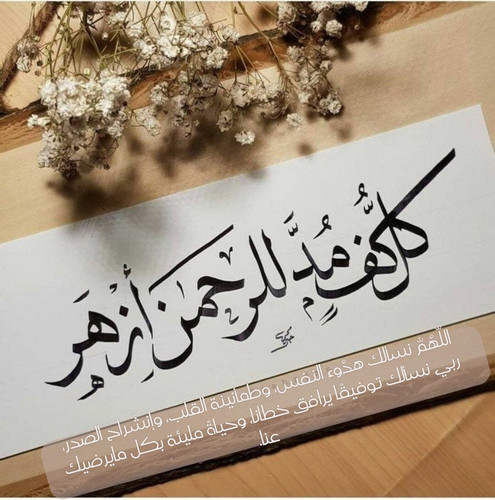 كل كُفٍ مُدَّ للرحمن أزهَر
اللّهُمَّ نسألك هدوء النفس، وطمأنينة القلب، وإنشراح الصدر،
ربي نسألك توفيقًا يرافق خطانا وحياةً مليئة بكل مايرضيك
عنا